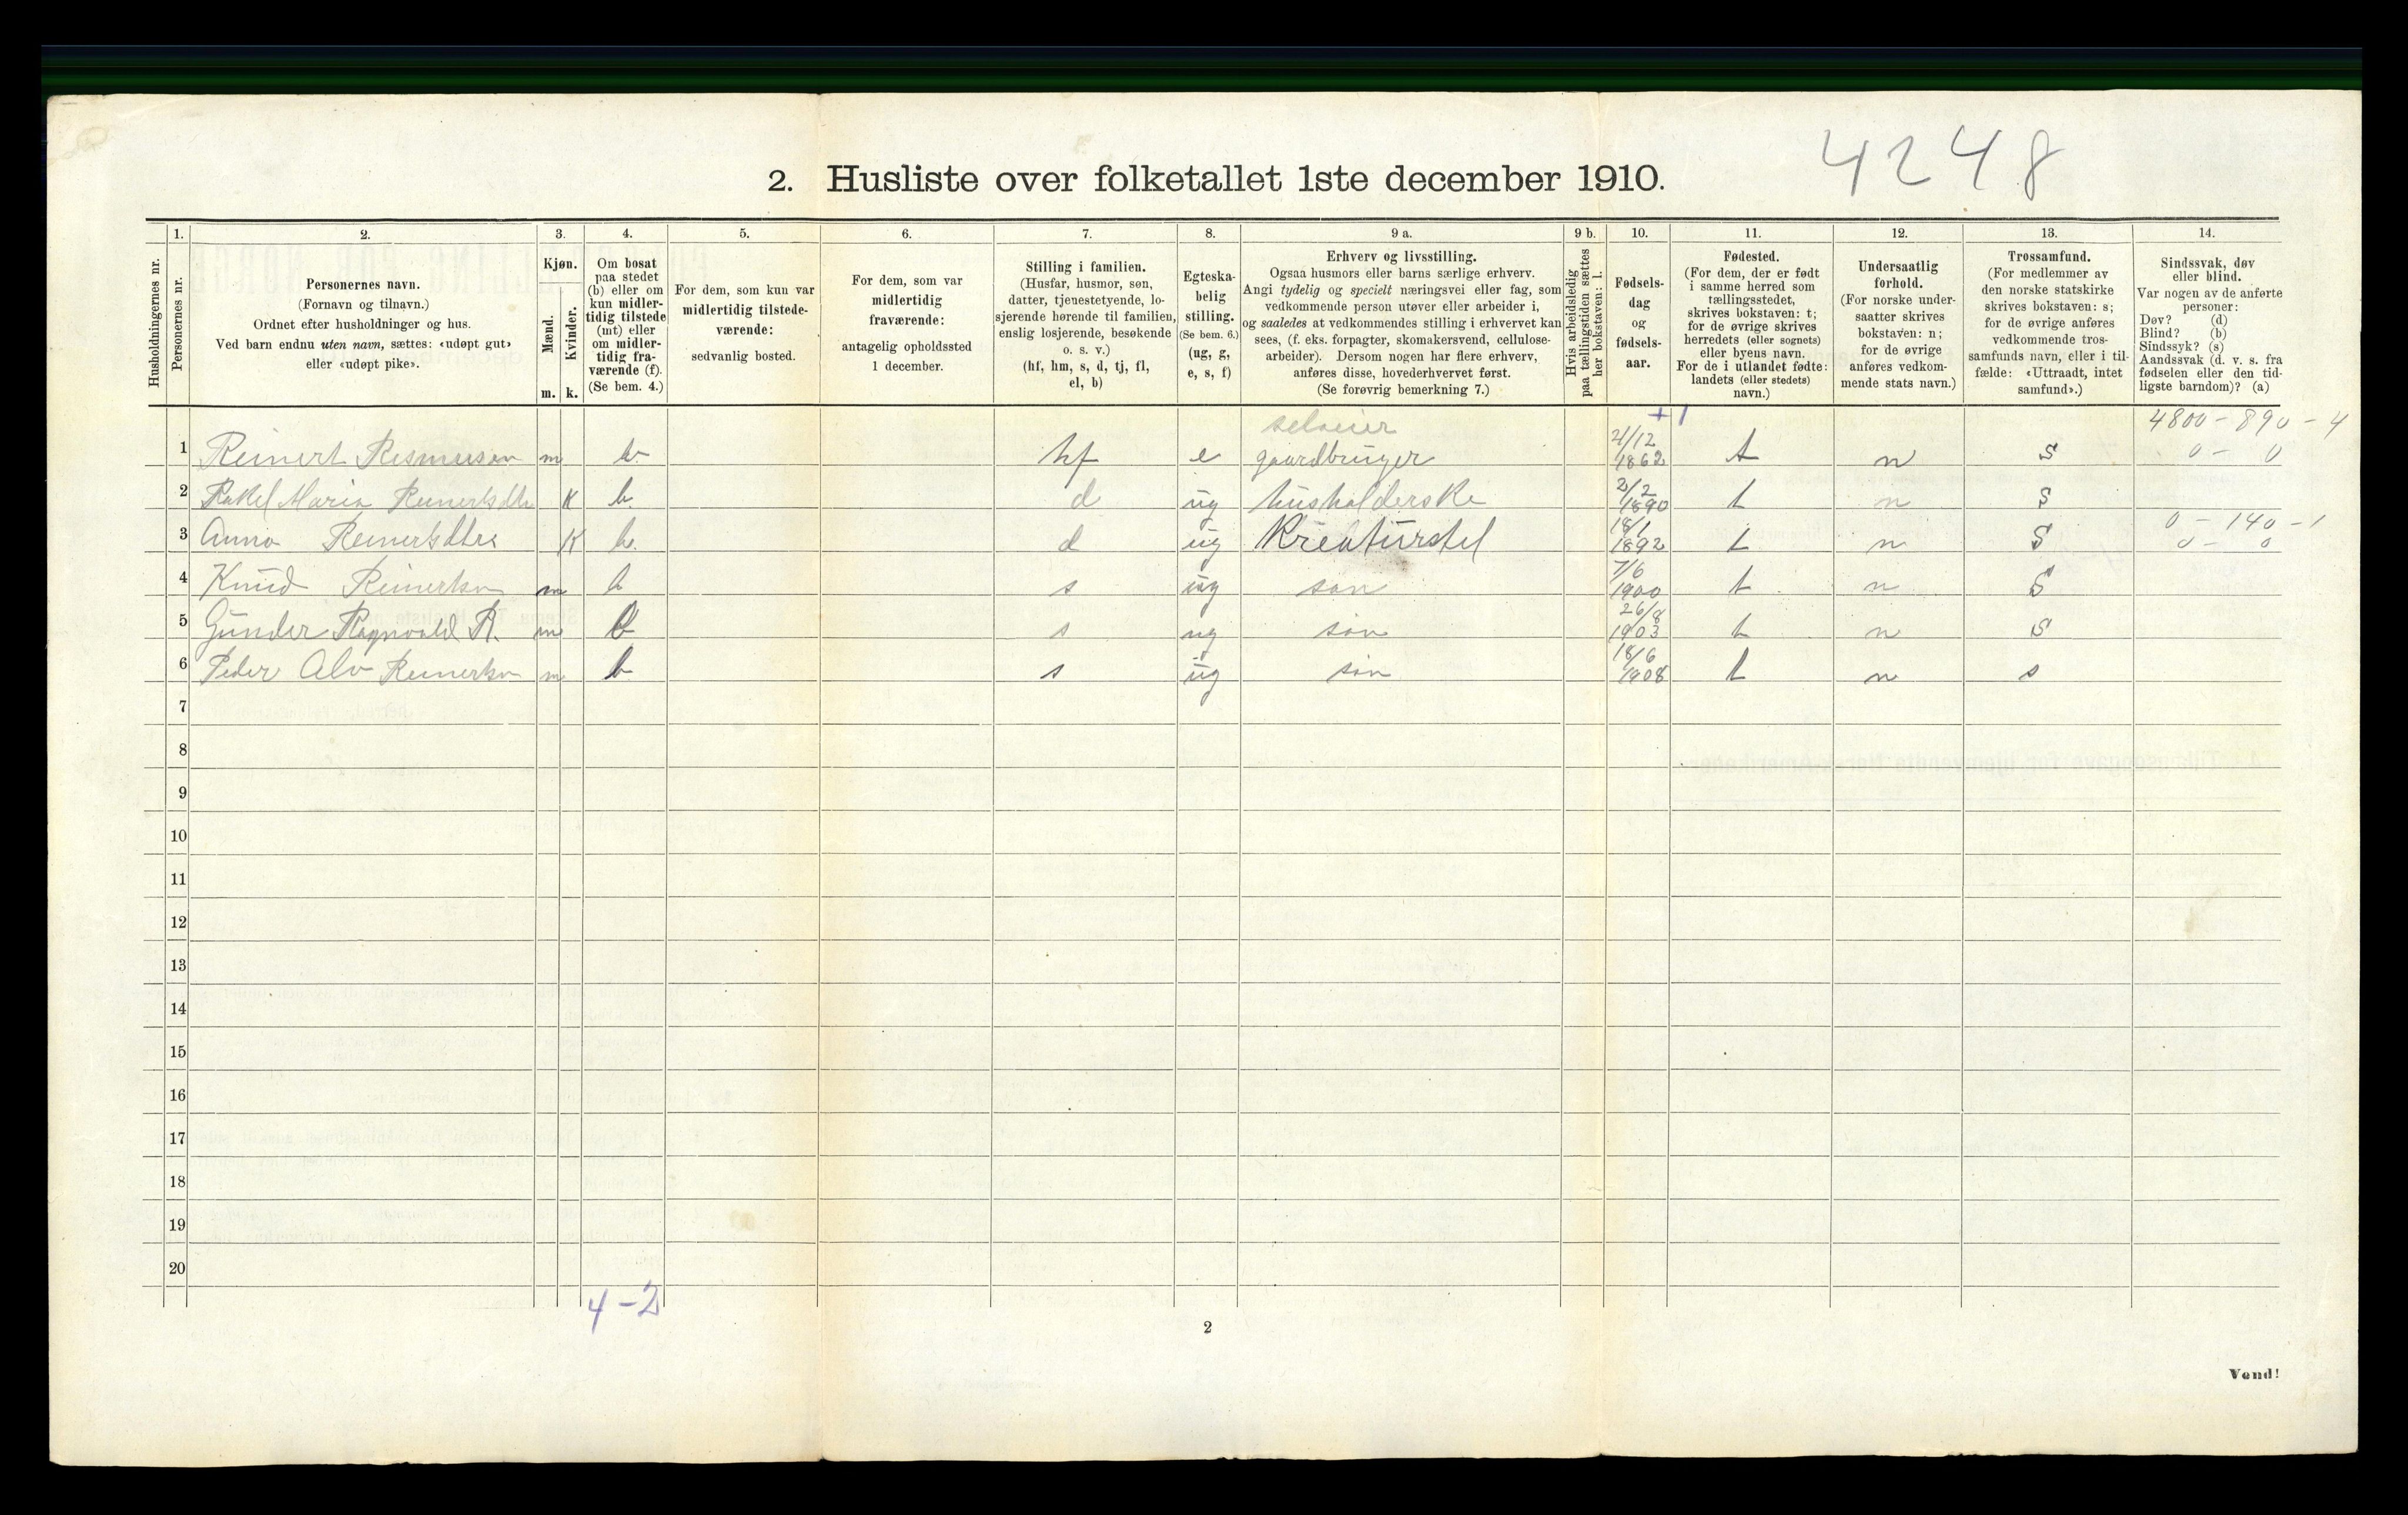 4248
2. Husliste over folketallet 1ste december 1910.
Husholdningernes nr.
1.
Personernes nr.
2.
Personernes navn.
(Fornavn og tilnavn.)
Ordnet efter husholdninger og hus.
Ved barn endnu uten navn, sættes: «udøpt gut»
eller «udøpt pike».
3.
Kjøn.
Mænd.
Kvinder.
m. k.
4.
Om bosat
paa stedet
(b) eller om
kun midler-
tidig tilstede
(mt) eller
om midler-
tidig fra-
værende (f).
(Se bem. 4.)
5.
For dem, som kun var
midlertidig tilstede-
værende:
sedvanlig bosted.
6.
For dem, som var
midlertidig
fraværende:
antagelig opholdssted
1 december.
7.
Stilling i familien.
(Husfar, husmor, søn,
datter, tjenestetyende, lo-
sjerende hørende til familien,
enslig losjerende, besøkende
o. s. v.)
(hf, hm, s, d, tj, fl,
el, b)
8.
Egteska-
belig
stilling.
(Se bem. 6.)
(ug, g,
e, s, f)
9 a.
Erhverv og livsstilling.
Ogsaa husmors eller barns særlige erhverv.
Angi tydelig og specielt næringsvei eller fag, som
vedkommende person utøver eller arbeider i,
og saaledes at vedkommendes stilling i erhvervet kan
sees, (f. eks. forpagter, skomakersvend, cellulose-
arbeider). Dersom nogen har flere erhverv,
anføres disse, hovederhvervet først.
(Se forøvrig bemerkning 7.)
9 b.
Hvis arbeidsledig
paa tællingstiden sættes
her bokstaven: l.
10.
Fødsels-
dag
og
fødsels-
aar.
11.
Fødested.
(For dem, der er født
i samme herred som
tællingsstedet,
skrives bokstaven: t;
for de øvrige skrives
herredets (eller sognets)
eller byens navn.
For de i utlandet fødte:
landets (eller stedets)
navn.)
12.
Undersaatlig
forhold.
(For norske under-
saatter skrives
bokstaven: n;
for de øvrige
anføres vedkom-
mende stats navn.)
13.
Trossamfund.
(For medlemmer av
den norske statskirke
skrives bokstaven: s;
for de øvrige anføres
vedkommende tros-
samfunds navn, eller i til-
fælde: «Uttraadt, intet
samfund».)
14.
Sindssvak, døv
eller blind.
Var nogen av de anførte
personer:
Døv? (d)
Blind? (b)
Sindssyk? (s)
Aandssvak (d. v. s. fra
fødselen eller den tid-
ligste barndom)? (a)
selveier +1 4800 - 890 - 4
1 Reinert Resmuson m b. hf e gaardbruger 1862 t n S 0 - 0
2 Rakel Maria Reinertsdtr K b. d ug husholderske 2/2 1890 t n S
0 - 140 - 1
3 Anna Reinertsdtr K b. d ug Kreaturstel 18/1 1892 t n S 0 - 0
4 Knud Reinertsn m b s ug søn 7/6 1900 t n S
5 Gunder Ragnvald R. m b s ug søn 26/8 1903 t n S
6 Peder Alv Reinertsn m b s ug søn 18/6 1908 t n s
7
8
9
10
11
12
13
14
15
16
17
18
19
20
4 - 2
2
Vend!